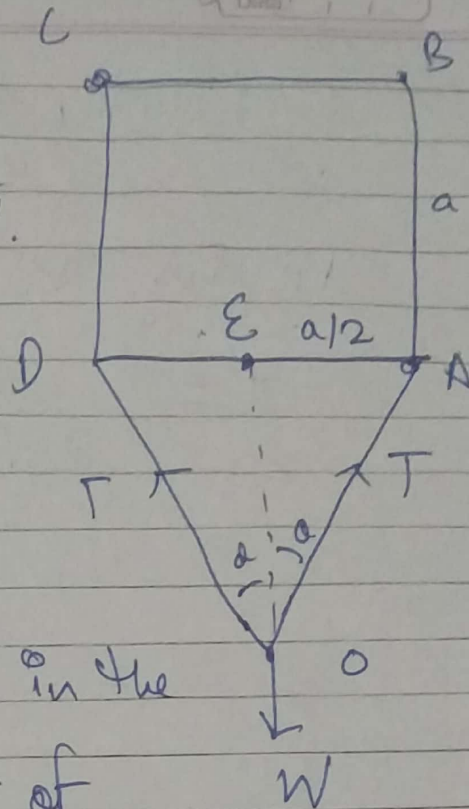 C B
a
ε a/2
D A
T T
α α
O
in the
of W